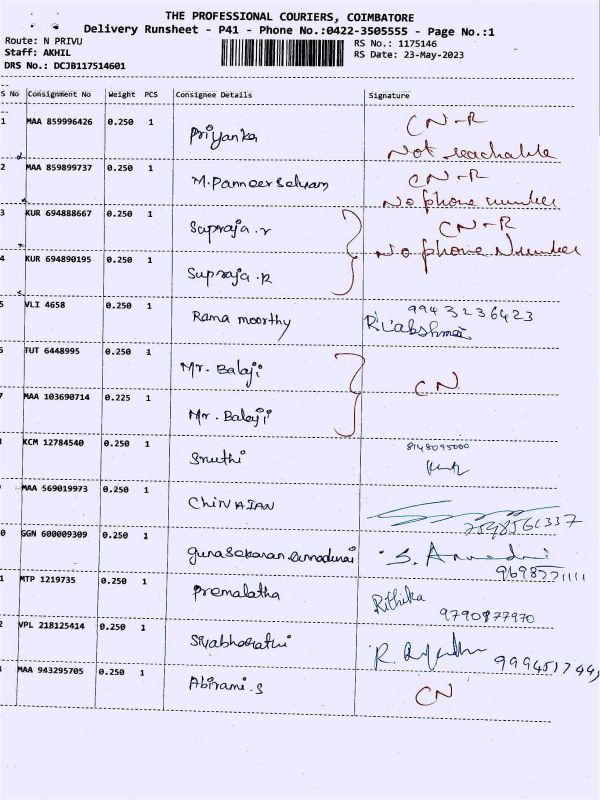 THE PROFESSIONAL COURIERS, COIMBATORE
Delivery Runsheet - P41 - Phone No.:0422-3505555 - Page No.:1
Route: N PRIVU
RS No.: 1175146
Staff: AKHIL
RS Date: 23-May-2023
DRS No.: DCJB117514601
S No Consignment No Weight PCS Consignee Details Signature
1 MAA 859996426 0.250 1 Priyanka CN-R
Not reachable
2 MAA 859899737 0.250 1 M.Panneerselvam CN-R
No phone number
3 KUR 694888667 0.250 1 Supraja.r CN-R
No phone Number
4 KUR 694890195 0.250 1 Supraja.R
5 VLI 4658 0.250 1 Rama moorthy 9943236423
R.Lakshmi
6 TUT 6448995 0.250 1 Mr. Balaji CN
7 MAA 103690714 0.225 1 Mr. Balaji
KCM 12784540 0.250 1 Sruthi 8148095000
MAA 569019973 0.250 1 CHINAIAN 7598561337
0 GGN 600009309 0.250 1 gunasekaran.annadurai S. Annadurai
9698771111
1 MTP 1219735 0.250 1 Premalatha Rithika
9790877970
2 VPL 218125414 0.250 1 Sivabharathi R.
MAA 943295705 0.250 1 Abirami.S CN